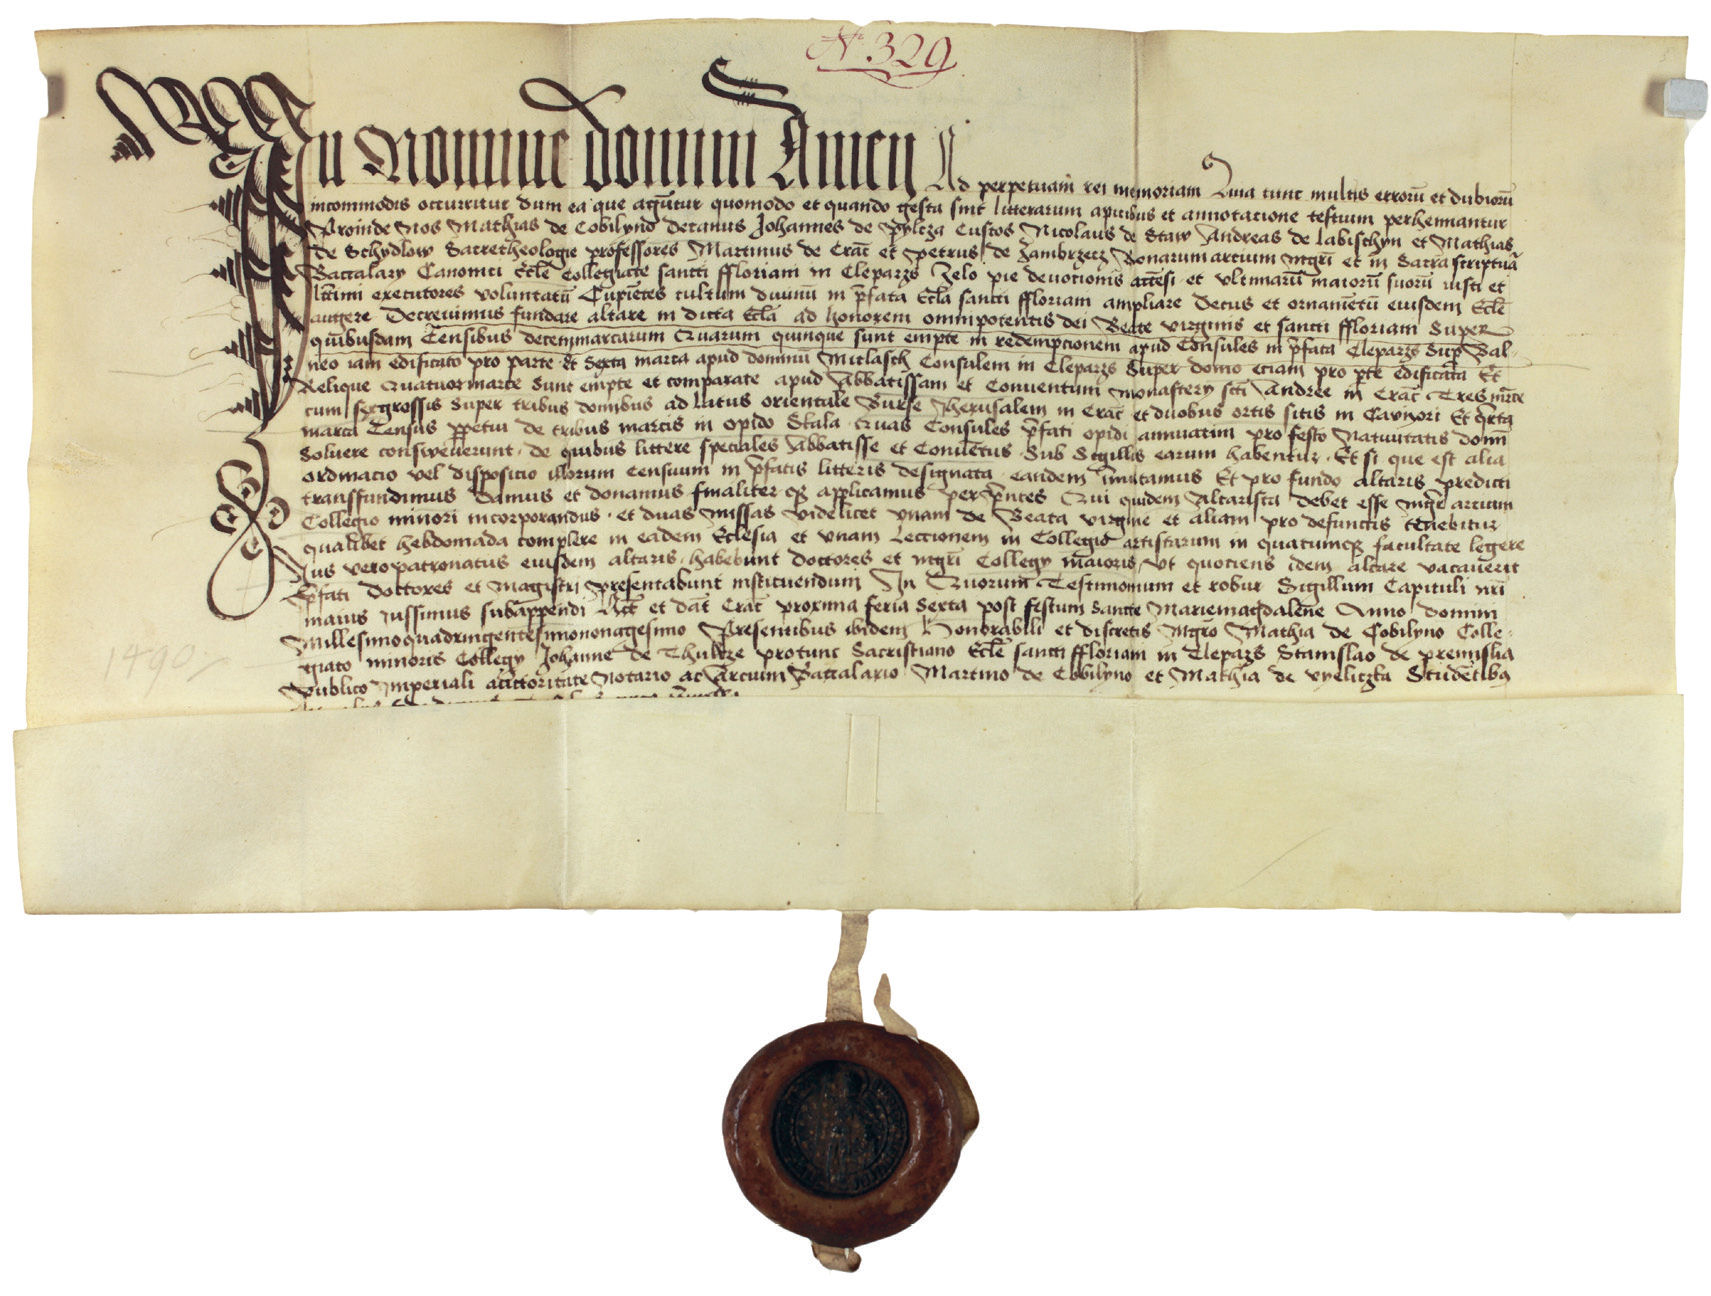 Nr 329
In Nomine domini Amen Ad perpetuam rei memoriam Quia tunc multis errorū et dubiorū
incommodis occurritur dum ea que agūtur quomodo et quando gesta sint litterarum apicibus et annotacione testium perhennantur
Proinde Nos Mathias de Cobilyno Decanus Johannes de Pylcza Custos Nicolaus de Staw Andreas de Labischyn et Mathias
de Schydlow Sacretheologie professores Martinus de Crac̄ et Petrus de Zambrzecz Bonarum arcium mgr̄i et in Sacra scriptura
Baccalary Canonici Eccl̄e Collegiate sancti ffloriani in Cleparzs Zelo pie devotionis accēsi et vltimarū maiorū suorū iusti et
ltimi executores voluntatū Cupiētes cultum diuinū in p̄fata Eccl̄a sancti ffloriani ampliare Decus et ornamētū eiusdem Eccl̄e
augere Decreuimus fundare altare in dicta Eccl̄a ad honorem omnipotentis dei Beate virginis et sancti ffloriani Super
quibusdam Censibus decemmarcarum Quarum quinque sunt empte in redempcionem apud Consules in p̄fata Cleparzs Sup̄ Bal-
neo iam edificato pro parte Et Sexta marca apud dominū Miclasch Consulem in Cleparzs Super domo eciam pro p̄te edificata Et
Relique Quatuormarce Sunt empte et comparate apud Abbatissam et Conuentum Monastery sct̄i Andree in Crac̄ Tres mr̄ce
cum sexgrossis Super tribus domibus ad latus orientale Burse Jherusalem in Crac̄ et duobus ortis sitis in Cavyori Et q̄rta
marca Census p̄petui de tribus marcis in opido Skala Quas Consules p̄fati opidi annuatim pro festo Natiuitatis domī
Soluere consweuerunt de quibus littere speciales Abbatisse et Conuētus Sub Sigillis earum habentur Et si que est alia
ordinacio vel disposicio illorum censuum in p̄fatis litteris designata eandem imitamus Et pro fundo altaris predicti
transfundimus Damus et donamus finaliter q̄ applicamus per p̄ntes Qui quidem Altarista debet esse mgr̄ arcium
Collegio minori incorporandus et duas missas videlicet vnam de Beata virgine et aliam pro defunctis tenebitur
qualibet hebdomada complere in eadem Ecclesia et vnam Leccionem in Collegio artistarum in quacumq̄ facultate legere
Jus vero patronatus eiusdem altaris habebunt doctores et mgr̄i Collegy maioris Vt quociens idem altare vacauerit
p̄fati doctores et magistri presentabunt instituendum In Quorum Testimonium et robur Sigillum Capituli nr̄i
maius iussimus subappendi Act̄ et dat̄ Crac̄ proxima feria Sexta post festum Sancte Mariemagdalene Anno domini
Millesimoquadringentesimononagesimo Presentibus ibidem Honorabili et discretis Mgr̄o Mathia de Cobilyno Colle-
giato minoris Collegy Johanne de Thulcze protunc Sacristiano Eccl̄e sancti ffloriani in Cleparzs Stanislao de Premislia
Publico Imperiali auctoritate Notario ac Arcium Baccalario Martino de Cobilyno et Mathia de Vyeliczka Studētibus
1490